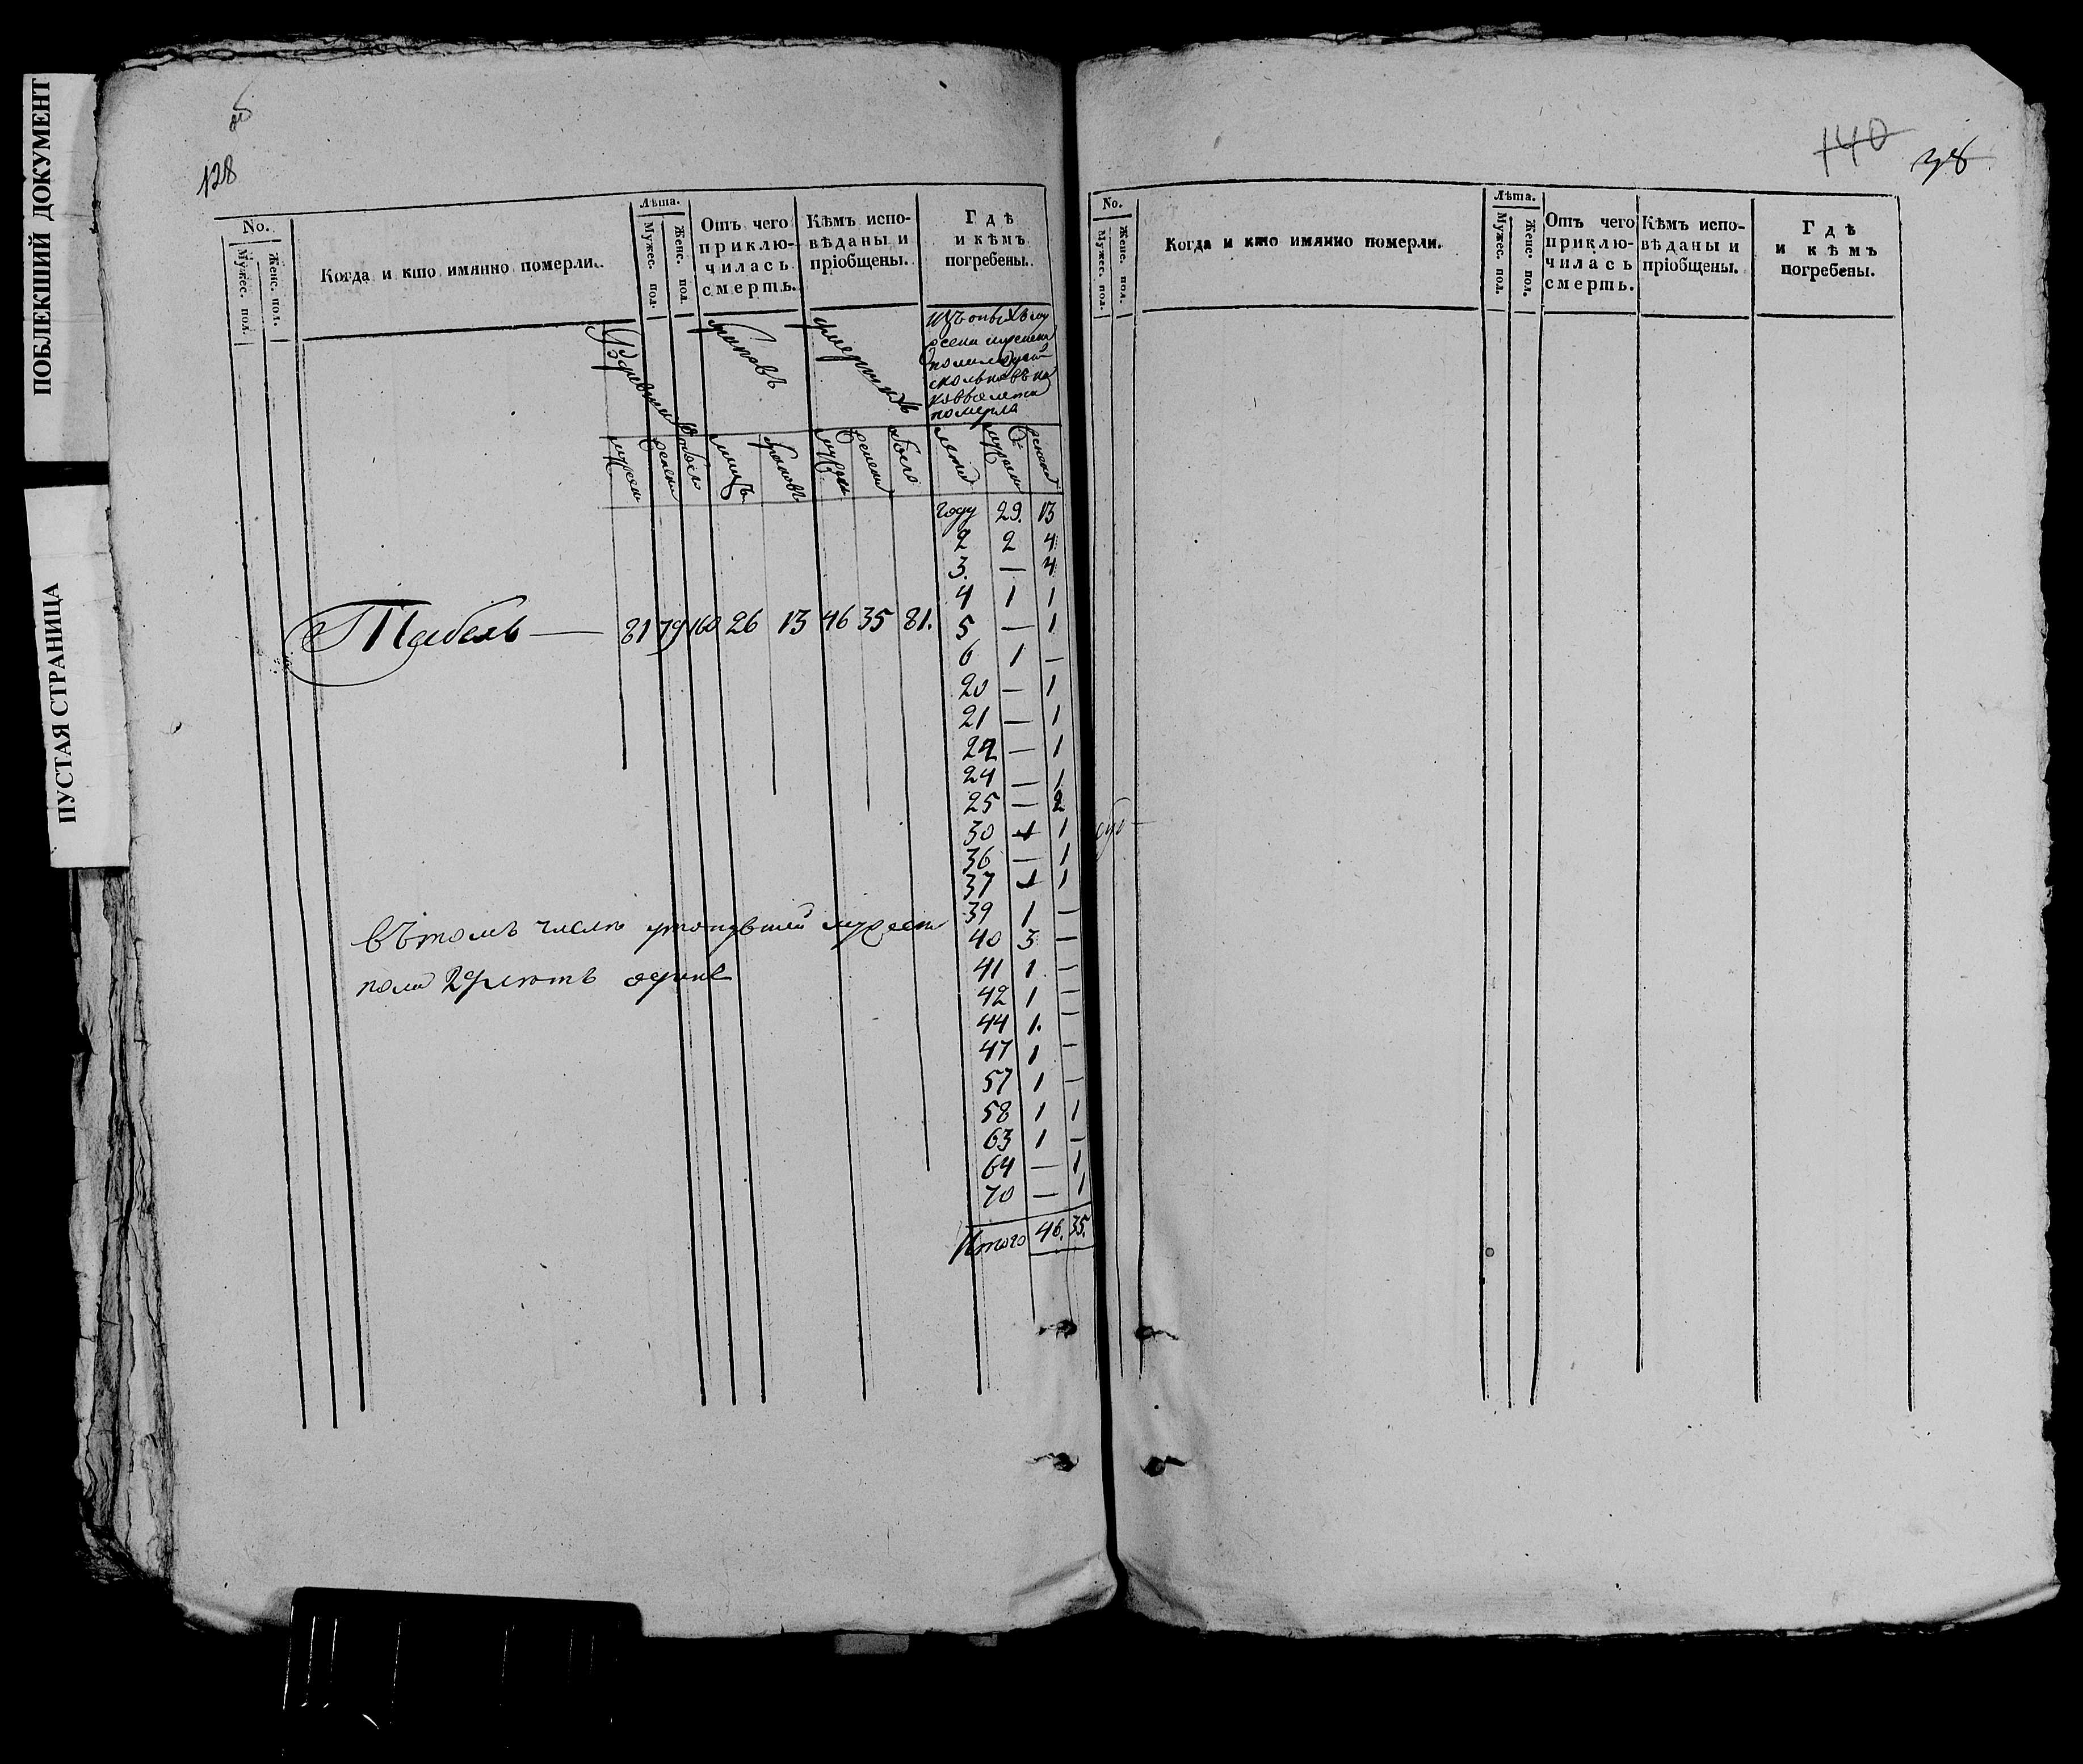 ПОБЛЕКШИЙ ДОКУМЕНТ
ПУСТАЯ СТРАНИЦА
128
No.
Мужес. пол.
Женс. пол.
Когда и кто имянно померли.
Лѣта.
Мужес. пол.
Женс. пол.
Отъ чего
приклю-
чилась
смерть.
Кѣмъ испо-
вѣданы и
пріобщены.
Гдѣ
и кѣмъ
погребены.
браковъ
умершихъ
померла
обоего
браковъ
обоего
году 29. 13
2 2 4
3. — 4
4 1 1
5 — 1
6 1 —
20 — 1
21 — 1
22 — 1
24 — 1
25 — 2
30 1 1
36 — 1
37 1 1
39 1 —
40 3 —
41 1 —
42 1 —
44 1. —
47 1 —
57 1 —
58 1 1
63 1 —
64 — 1
70 — 1
Итого 46. 35.
Табель — 81 79 160 26 13 46 35 81.
въ томъ числѣ утонувшій мужеск
пола 29 лѣтъ одинъ
140 38
No.
Мужес. пол.
Женс. пол.
Когда и кто имянно померли.
Лѣта.
Мужес. пол.
Женс. пол.
Отъ чего
приклю-
чилась
смерть.
Кѣмъ испо-
вѣданы и
пріобщены.
Гдѣ
и кѣмъ
погребены.